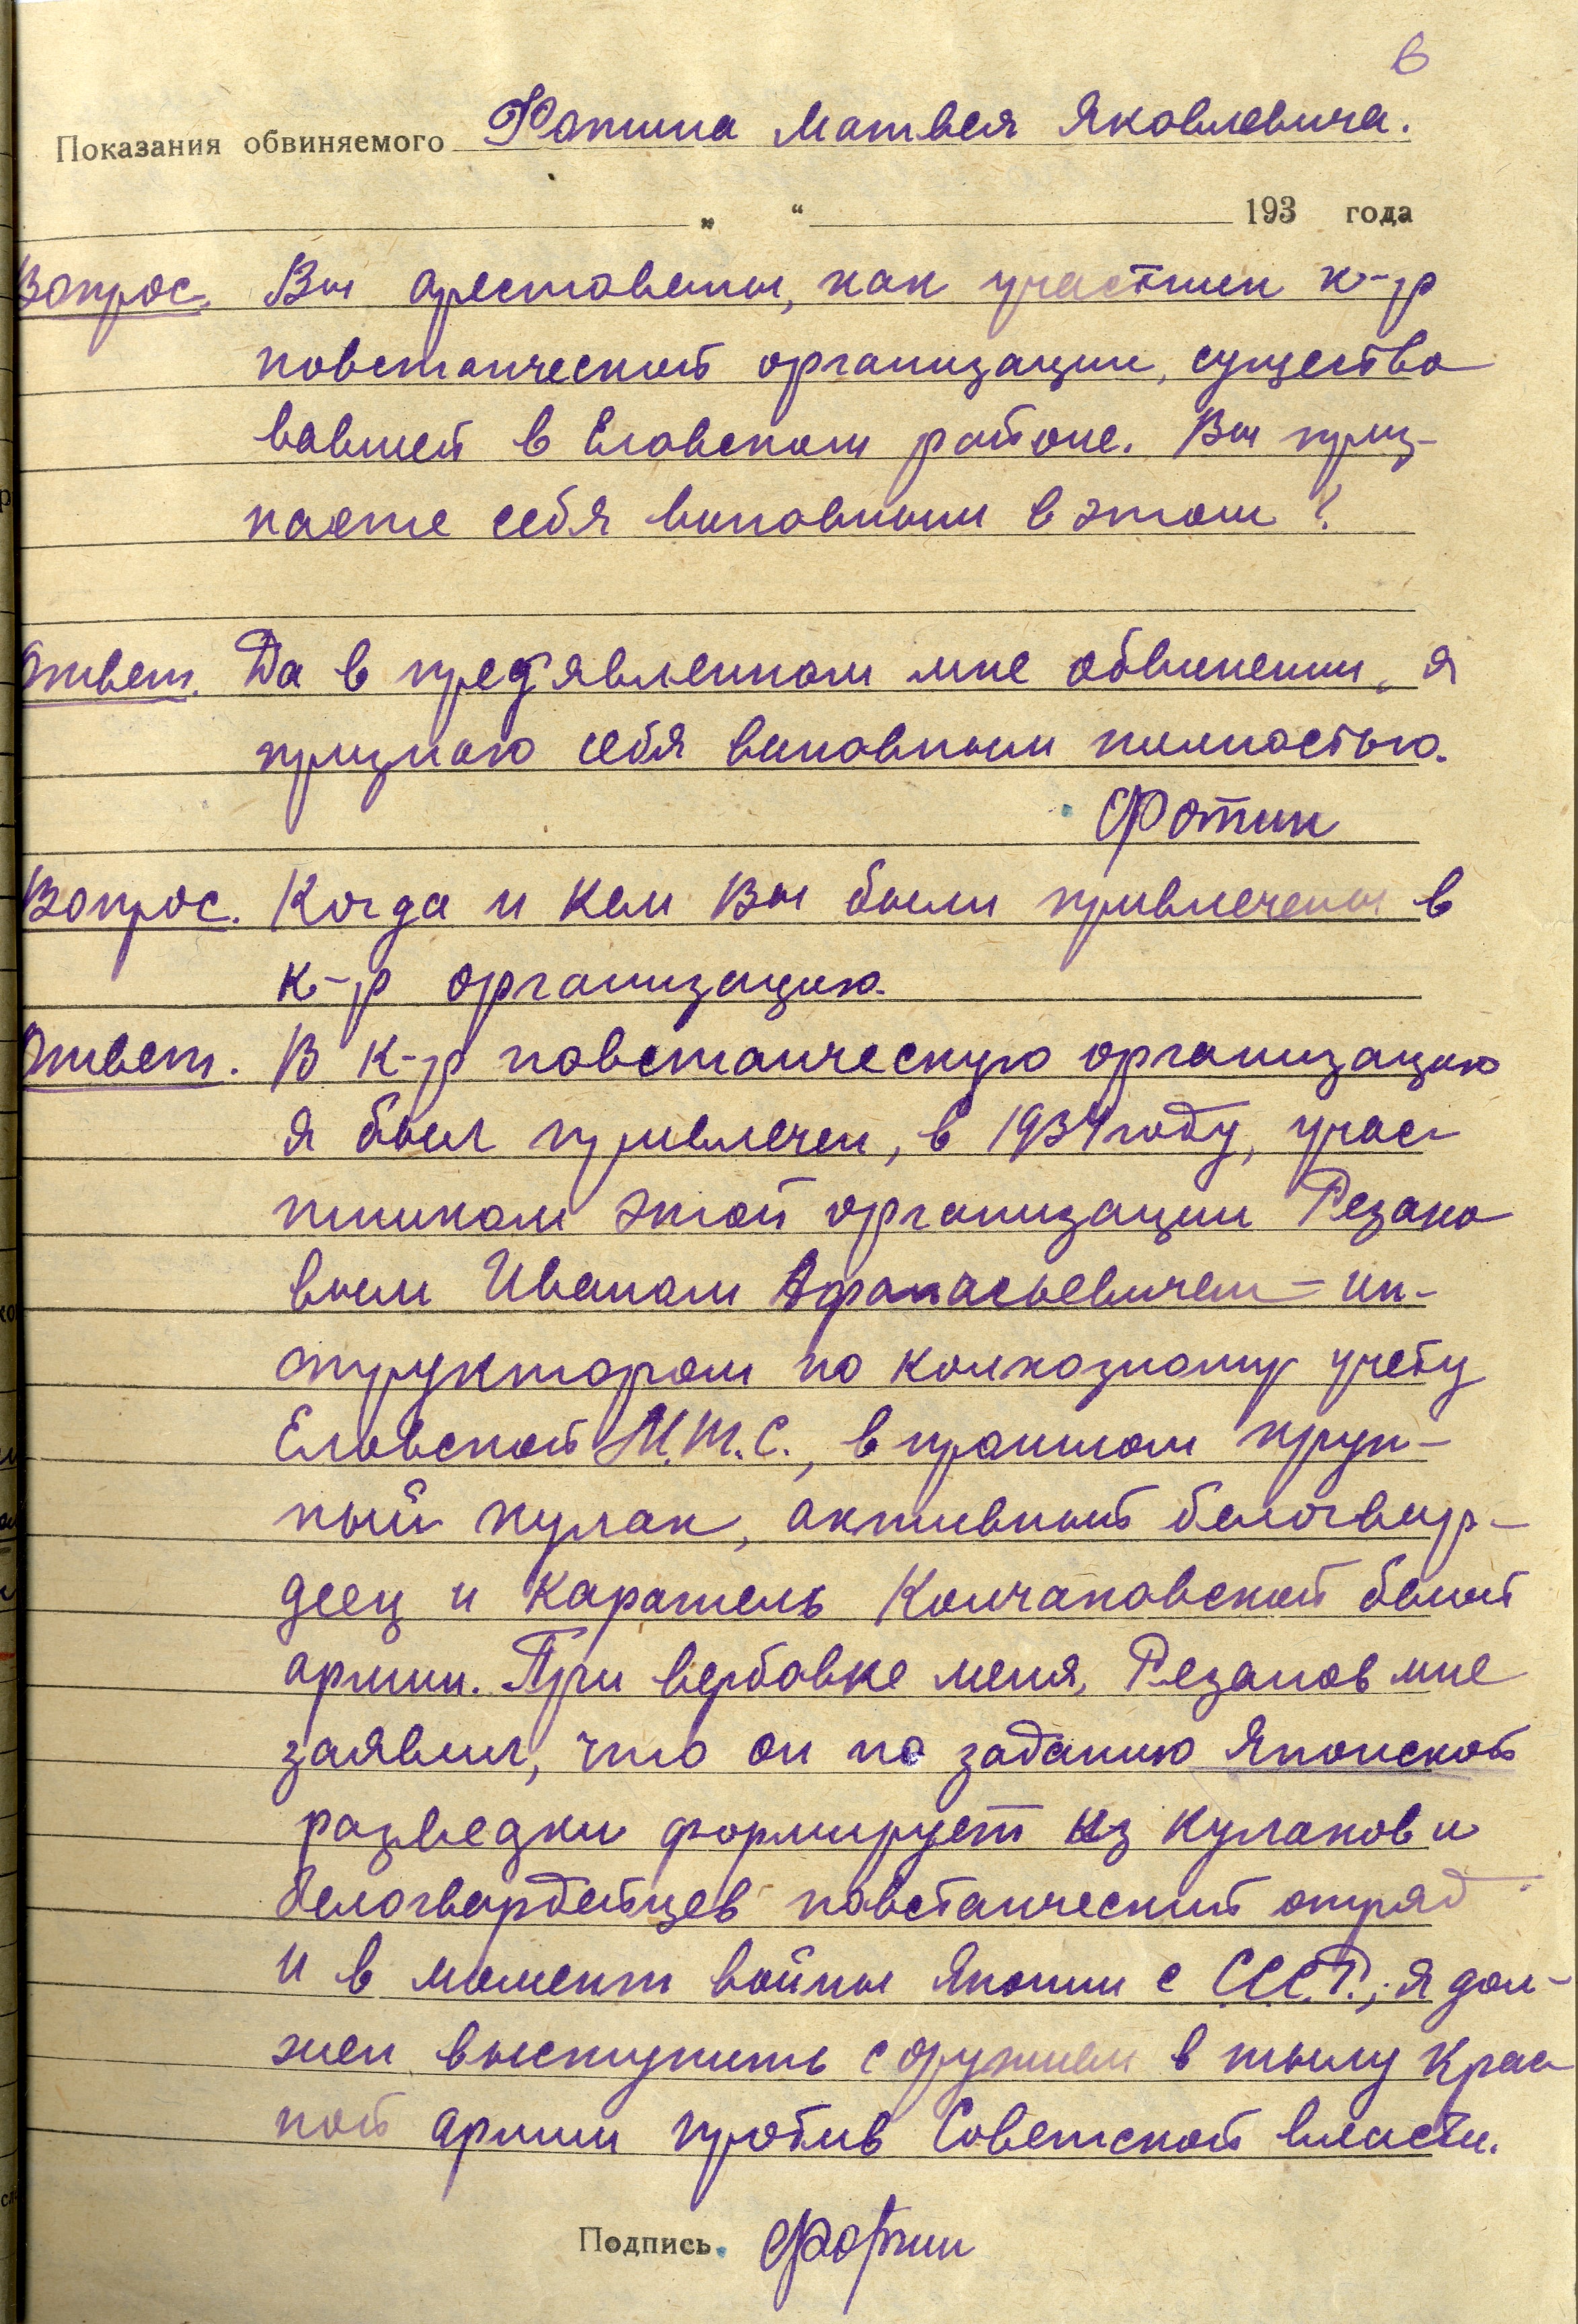 6
Показания обвиняемого Фотина Матвея Яковлевича.
„ “ 193 года
Вопрос. Вы арестованы, как участник к-р
повстанческой организации, существо
вавшей в Еловском районе. Вы приз-
наете себя виновным в этом?
Ответ. Да в пред'явленном мне обвинении, я
признаю себя виновным полностью.
Фотин
Вопрос. Когда и кем Вы были привлечены в
к-р организацию.
Ответ. В к-р повстанческую организацию
я был привлечен, в 1934 году, учас-
тником этой организации Резано
вым Иваном Афанасьевичем – ин-
структором по колхозному учету
Еловской М.Т.С., в прошлом круп-
ный кулак, активный белогвар-
деец и каратель Колчаковской белой
армии. При вербовке меня, Резанов мне
заявил, что он по заданию Японской
разведки формирует из кулаков и
белогвардейцев повстанческий отряд
и в момент войны Японии с СССР, я дол-
жен выступить с оружием в тылу Крас
ной армии против Советской власти.
Подпись. Фотин